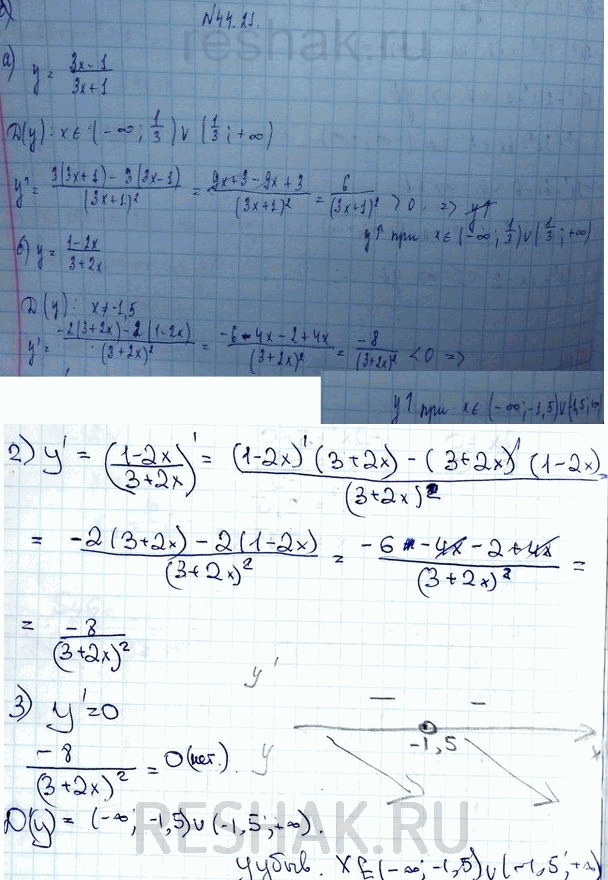 №44.21.
reshak.ru
а) y = (3x-1)/(3x+1)
D(y): x ∈ (-∞; 1/3) ∪ (1/3; +∞)
y' = (3(3x+1) - 3(3x-1))/(3x+1)² = (9x+3-9x+3)/(3x+1)² = 6/(3x+1)² > 0 => y↑
y↑ при x ∈ (-∞; 1/3) ∪ (1/3; +∞)
б) y = (1-2x)/(3+2x)
D(y): x ≠ -1,5
y' = (-2(3+2x) - 2(1-2x))/(3+2x)² = (-6-4x-2+4x)/(3+2x)² = -8/(3+2x)² < 0 =>
y↑ при x ∈ (-∞; -1,5) ∪ (-1,5; +∞)
2) y' = ((1-2x)/(3+2x))' = ((1-2x)'(3+2x) - (3+2x)'(1-2x))/(3+2x)²
= (-2(3+2x) - 2(1-2x))/(3+2x)² = (-6-4x-2+4x)/(3+2x)² =
= -8/(3+2x)²
y'
3) y' = 0
- -
-1,5
x
-8/(3+2x)² = 0 (нет).
y
D(y) = (-∞; -1,5) ∪ (-1,5; +∞).
RESHAK.RU
y убыв. x ∈ (-∞; -1,5) ∪ (-1,5; +∞)